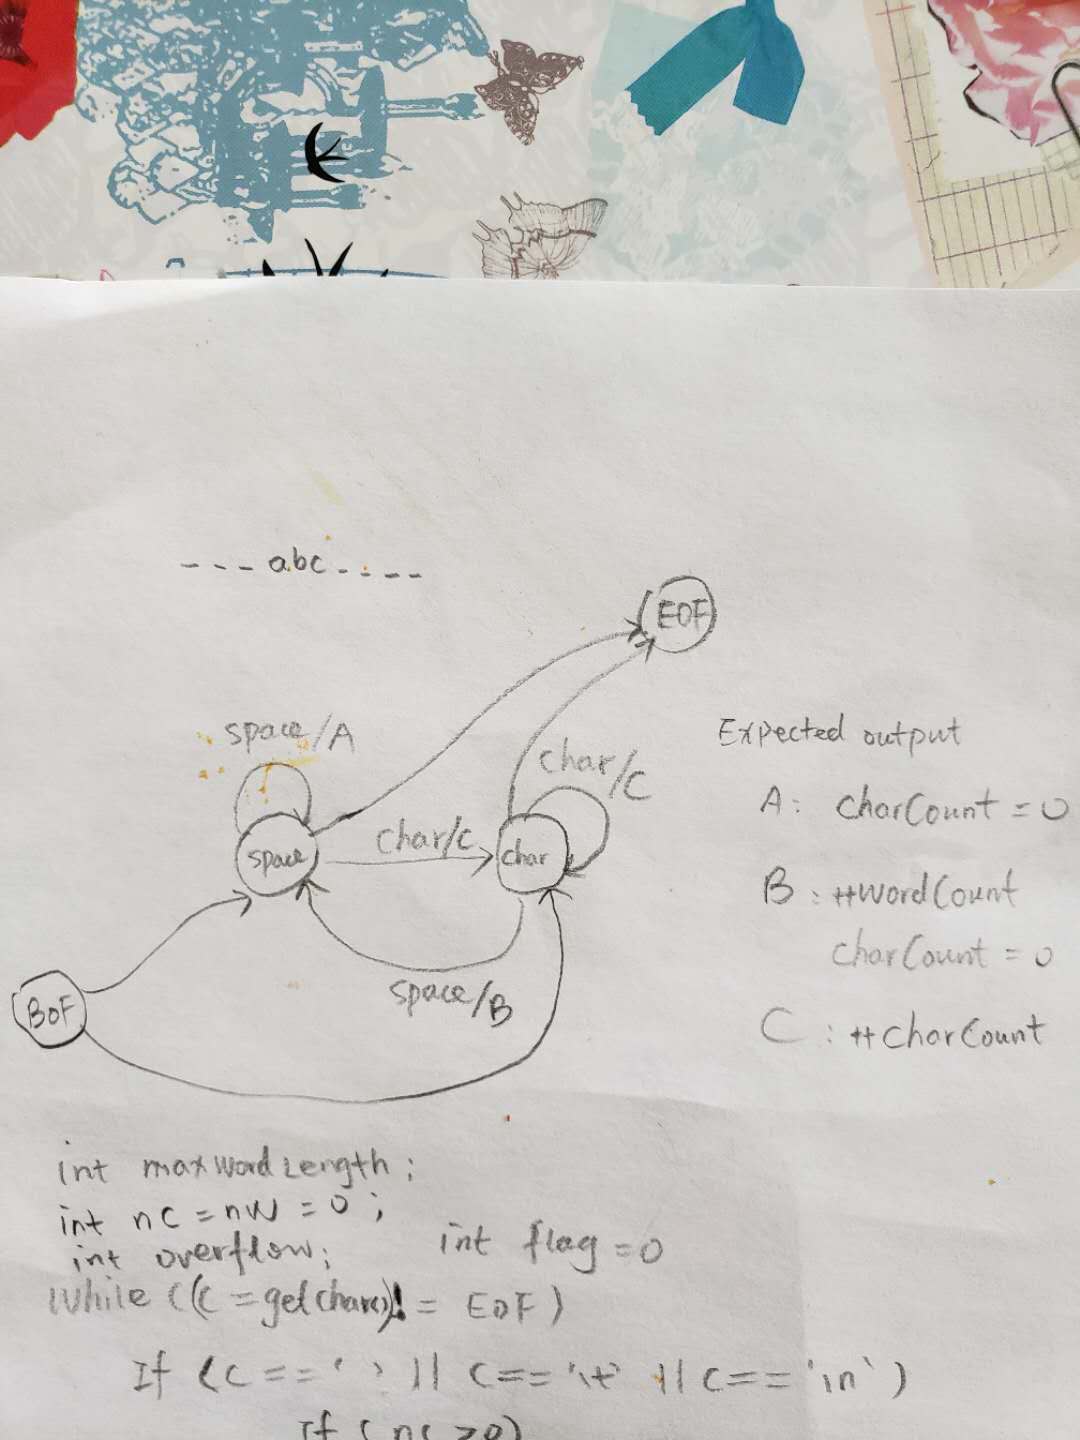 ---abc----
EOF
space/A
char/C
space
char/c
char
space/B
BOF
Expected output
A: charCount = 0
B: ++wordCount
charCount = 0
C: ++charCount
int maxwordLength;
int nc = nw = 0;
int overflow; int flag = 0
while ((c = getchar()) != EOF)
If (c == ' ' || c == '\t' || c == '\n')
If (nc >0)